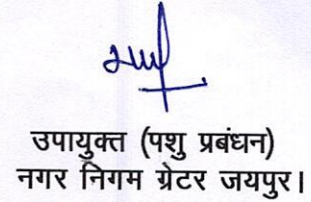 उपायुक्त (पशु प्रबंधन)
नगर निगम ग्रेटर जयपुर।